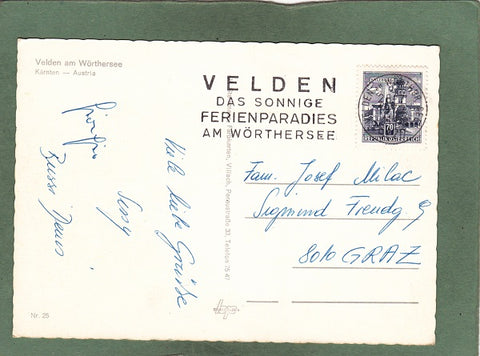 Velden am Wörthersee
Kärnten — Austria
VELDEN
DAS SONNIGE
FERIENPARADIES
AM WÖRTHERSEE
70
REPUBLIK ÖSTERREICH
Viele liebe Grüße
Bussi
Villach, Peraustraße 30, Telefon
Fam. Josef Milac
Sigmund
8010 GRAZ
Nr. 25